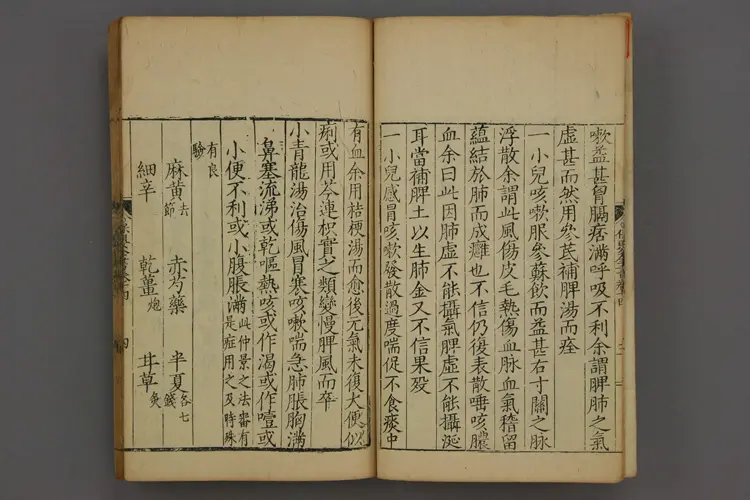 嗽益甚胷膈痞滿呼吸不利余謂脾肺之氣
虛甚而然用參芪補脾湯而痊
一小兒咳嗽服參蘇飲而益甚右寸關之脉
浮散余謂此風傷皮毛熱傷血脉血氣稽留
蘊結於肺而成癰也不信仍後表散唾咳膿
血余曰此因肺虛不能攝氣脾虛不能攝涎
耳當補脾土以生肺金又不信果歿
一小兒感冒咳嗽發散過度喘促不食痰中
有血余用桔梗湯而愈後元氣未復大便似
痢或用芩連枳實之類變慢脾風而卒
小青龍湯治傷風冒寒咳嗽喘急肺脹胸滿
鼻塞流涕或乾嘔熱咳或作渴或作噎或
小便不利或小腹脹滿此仲景之法審有
是症用之及時殊
有良
驗
麻黃去
節 赤芍藥 半夏各七
錢
細辛 乾薑炮 甘草炙
四